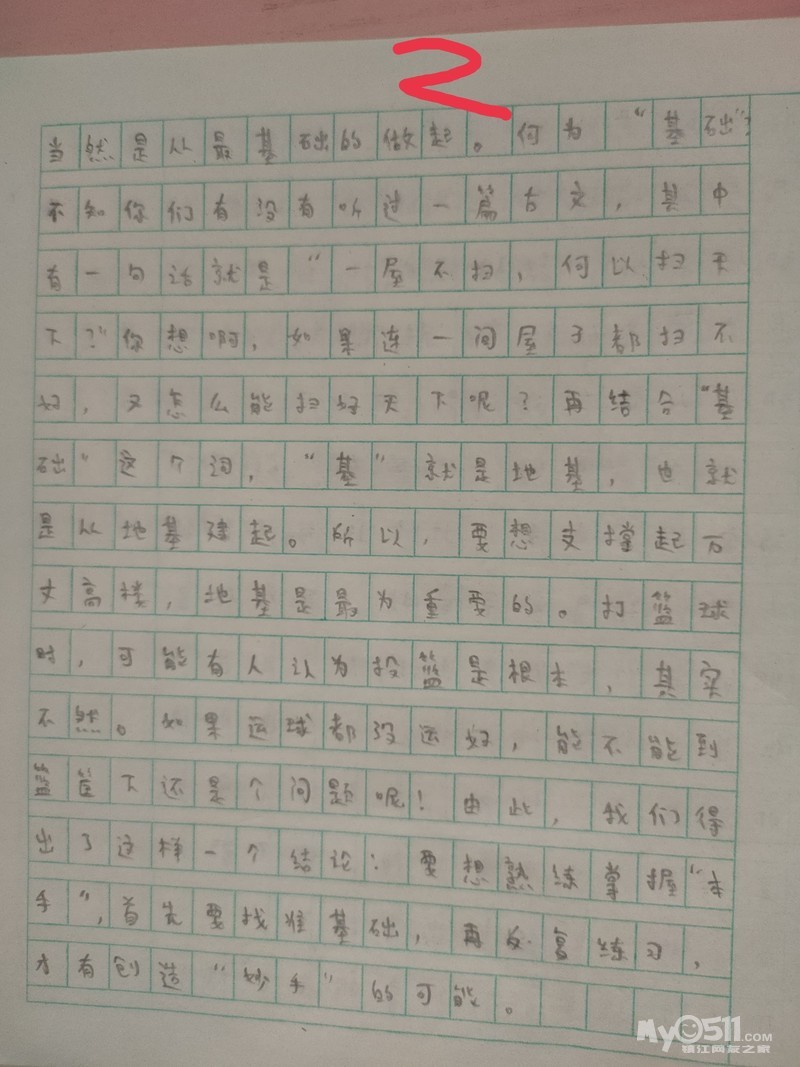 2
当然是从最基础的做起。何为“基础”？
不知你们有没有听过一篇古文，其中
有一句话就是“一屋不扫，何以扫天
下？”你想啊，如果连一间屋子都扫不
好，又怎么能扫好天下呢？再结合“基
础”这个词，“基”就是地基，也就
是从地基建起。所以，要想支撑起万
丈高楼，地基是最为重要的。打篮球
时，可能有人认为投篮是根本，其实
不然。如果运球都没运好，能不能到
篮筐下还是个问题呢！由此，我们得
出了这样一个结论：要想熟练掌握“本
手”，首先要找准基础，再反复练习，
才有创造“妙手”的可能。
My0511.COM
镇江网友之家